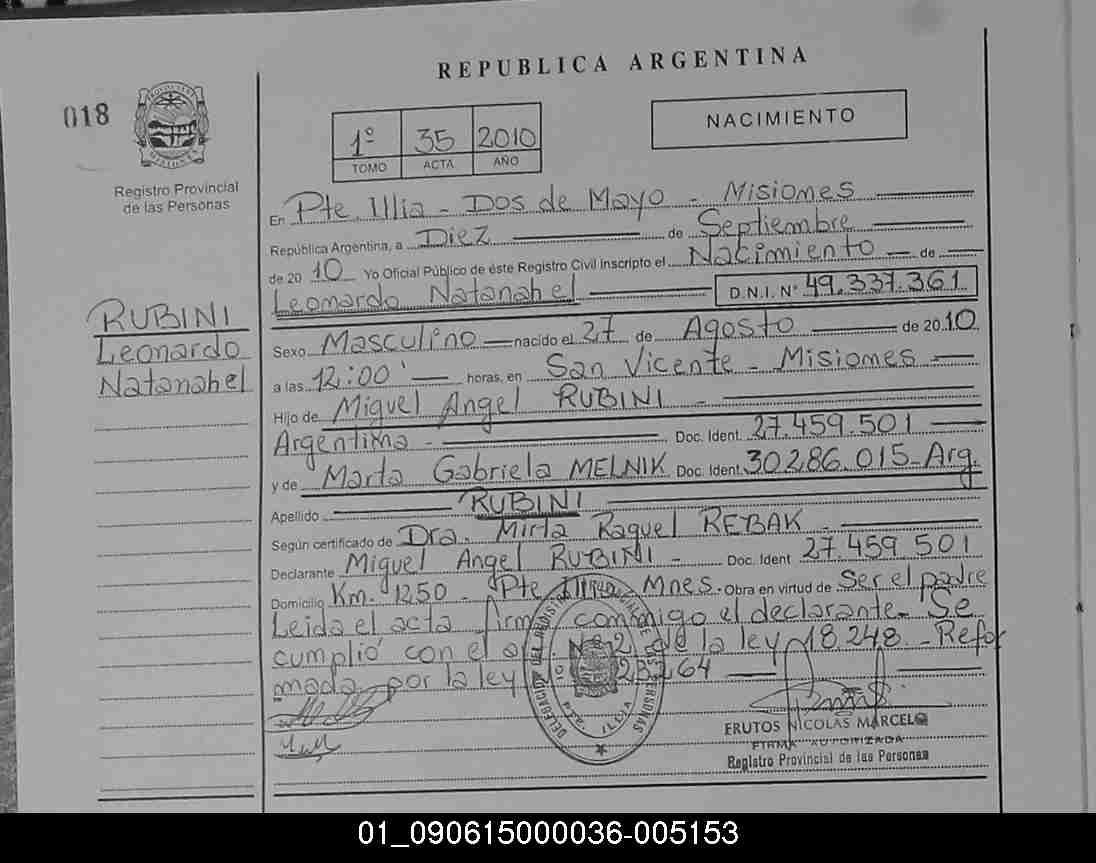 REPUBLICA ARGENTINA
018
PROVINCIA DE MISIONES
Registro Provincial
de las Personas
1º 35 2010
TOMO ACTA AÑO
NACIMIENTO
En Pte. Illia - Dos de Mayo - Misiones
República Argentina, a Diez de Septiembre
de 2010 Yo Oficial Público de éste Registro Civil Inscripto el Nacimiento de
Leonardo Natanahel D.N.I. Nº 49.337.361
RUBINI
Leonardo
Natanahel
Sexo Masculino nacido el 27 de Agosto de 2010
a las 12:00' horas, en San Vicente - Misiones
Hijo de Miguel Angel RUBINI -
Argentina - Doc. Ident. 27.459.501
y de Marta Gabriela MELNIK Doc. Ident. 30.286.015-Arg.
Apellido RUBINI
Según certificado de Dra. Mirta Raquel REBAK -
Declarante Miguel Angel RUBINI - Doc. Ident 27.459.501
Domicilio Km. 1250 - Pte Mnes. Obra en virtud de Ser el padre
Leida el acta firma conmigo el declarante - Se
cumplió con el de la ley 18.248 - Refor
mada por la ley 23264
DELEGACION DEL REGISTRO PROVINCIAL DE LAS PERSONAS
FRUTOS NICOLAS MARCELO
FIRMA AUTORIZADA
Registro Provincial de las Personas
01_090615000036-005153